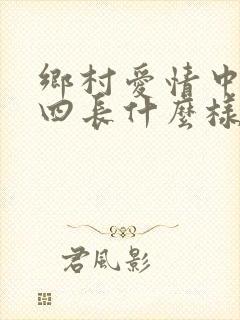 鄉村愛情中
四長什麼樣
君風影